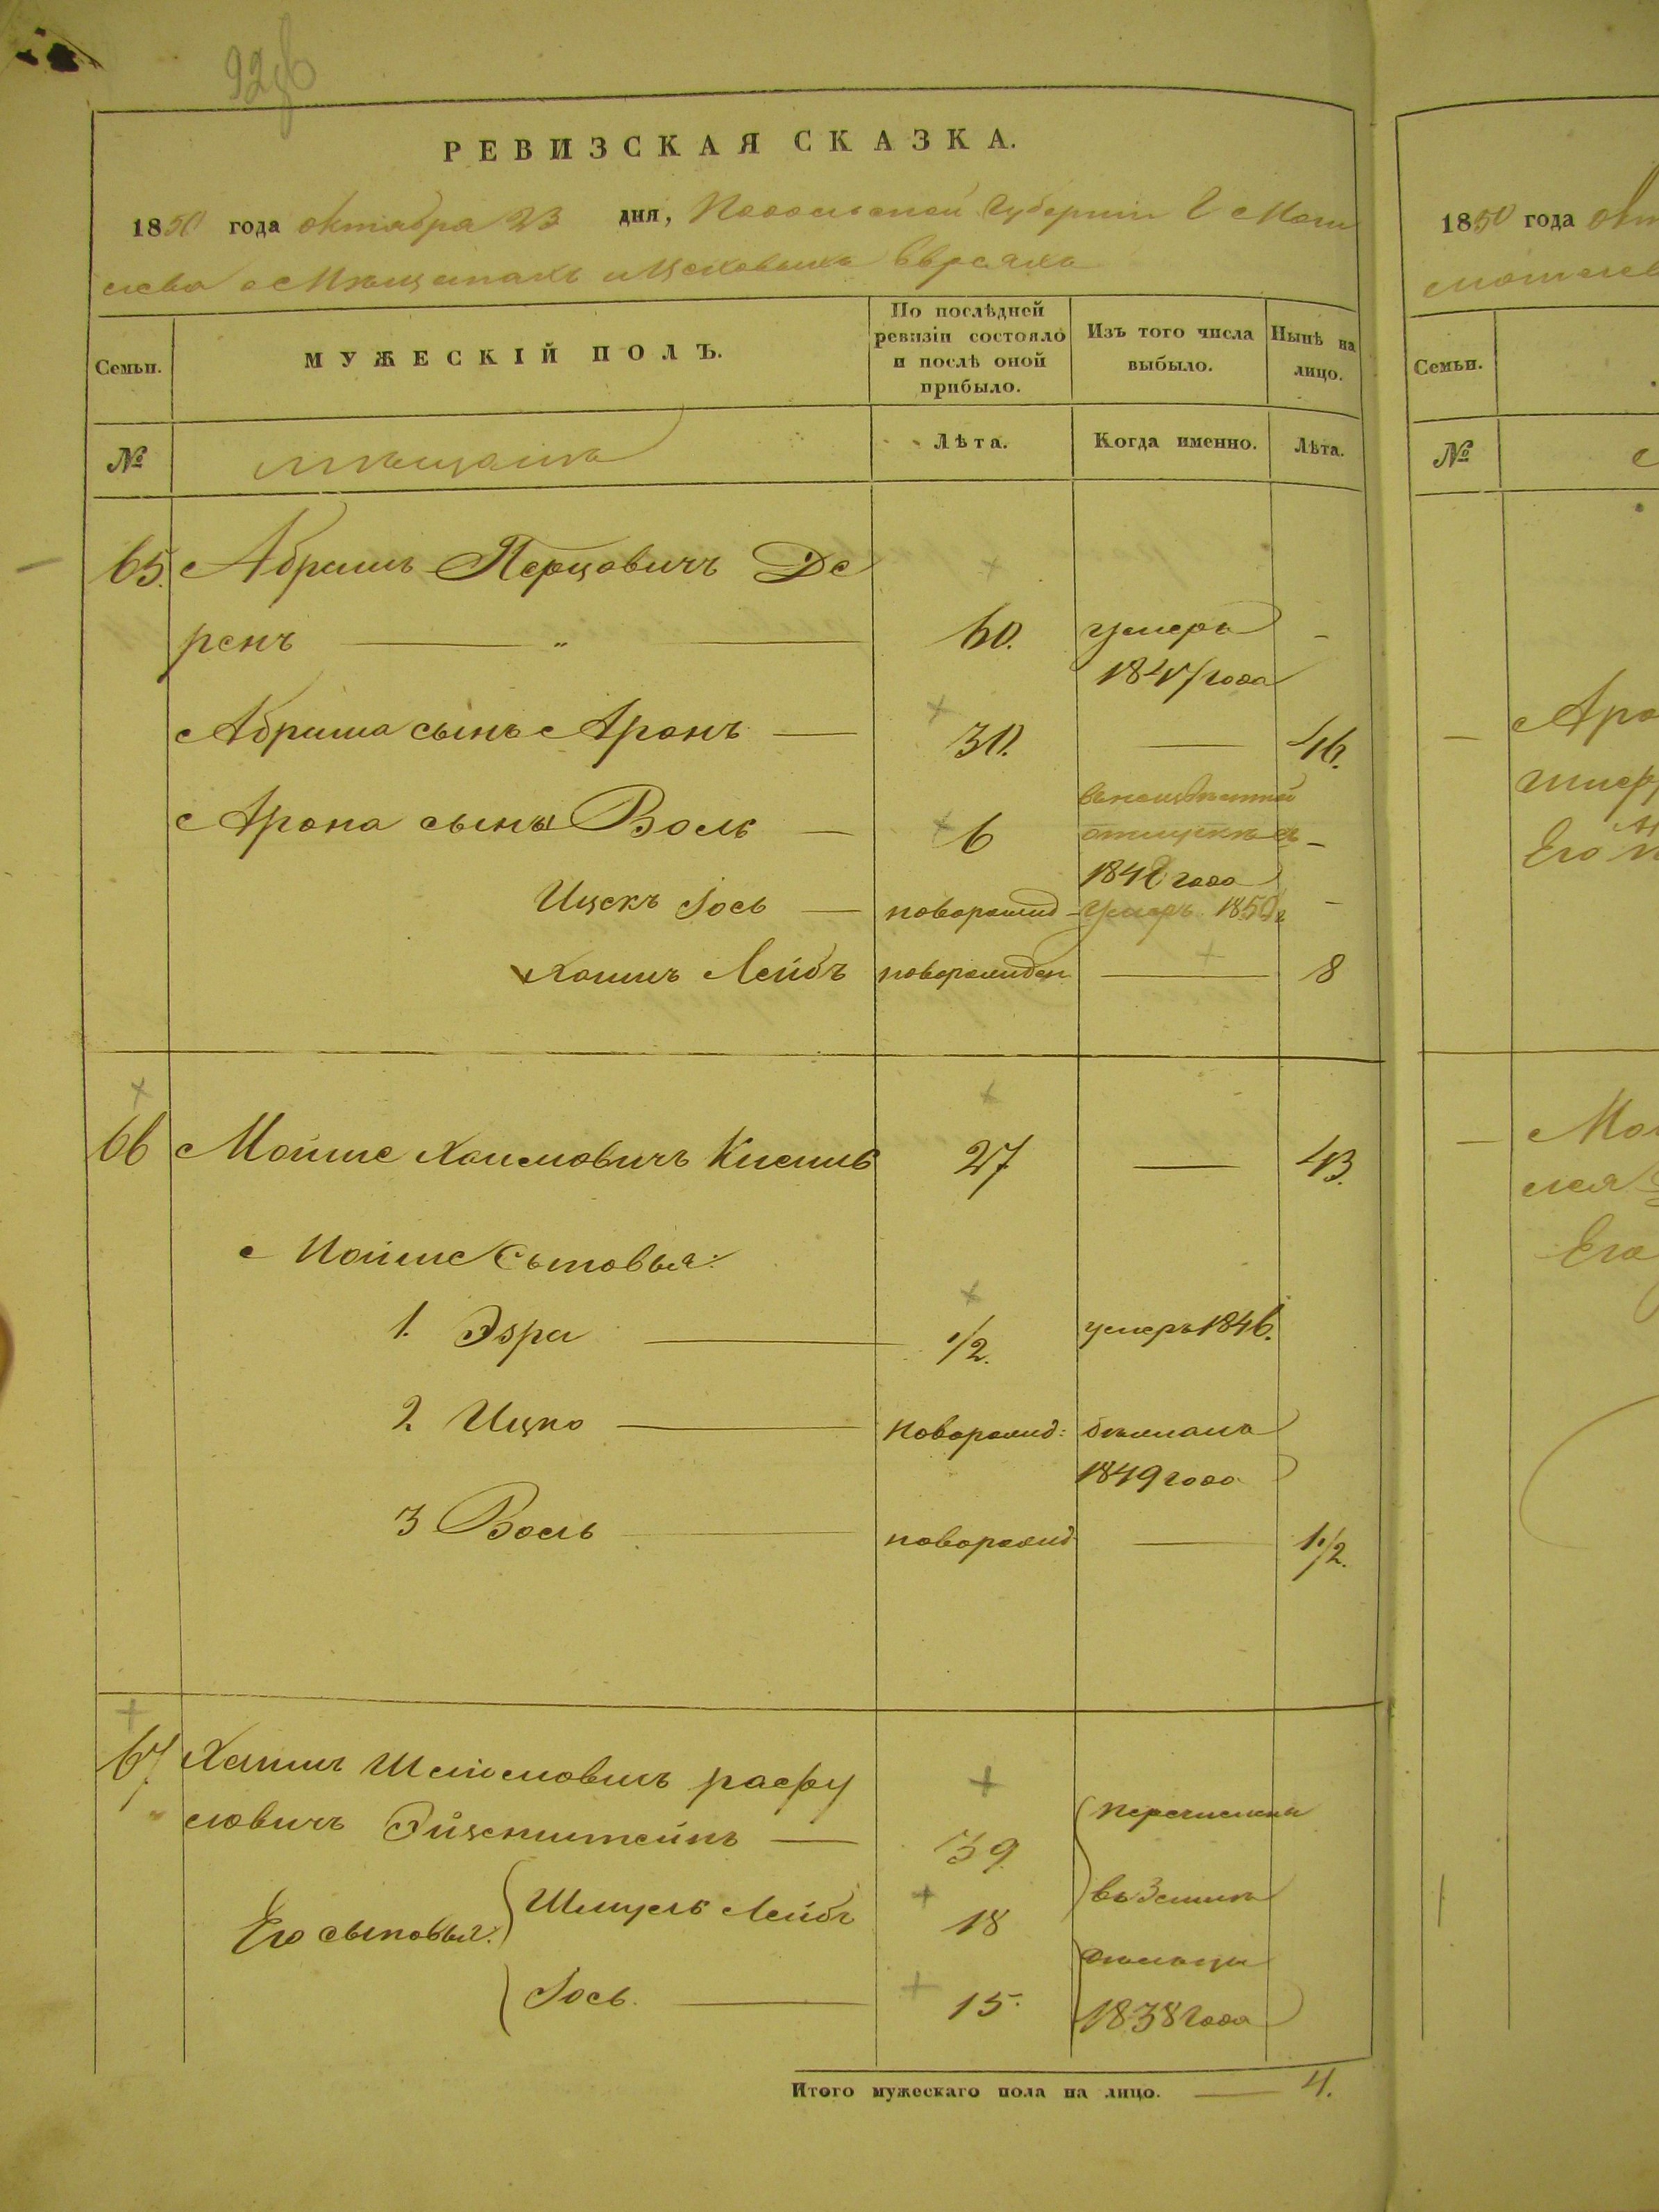 РЕВИЗСКАЯ СКАЗКА.
1850 года октября 23 дня, Подольской Губернiи г Моги
лева о Мѣщанахъ и Цеховыхъ Евреяхъ
Семьи.
МУЖЕСКІЙ ПОЛЪ.
По послѣдней ревизіи состояло и послѣ оной прибыло.
Изъ того числа выбыло.
Нынѣ на лицо.
№
мѣщане
Лѣта.
Когда именно.
Лѣта.
65. Абрамъ Перцовичъ Де
ренъ — 60. умеръ -
1847 года
Абрама сынъ Аронъ — 30. — 46.
Арона сыны Воль — 6 -
1842 года
Ицекъ Іось — новорожд умеръ 1850 -
Хаимъ Лейбъ новорожден — 8
66 Мойше Хаимовичъ 27 — 43.
Мойше Сыновья:
1. Эзра — 1/2. умеръ 1846.
2 Ицко — новорожд:
1849 года
3 Воль — новорожд — 1 1/2.
67. Хаимъ
Эйзенштейнъ — 39. перечислены
Его сыновья: Шмуль Лейбъ 18 въ
Іось. — 15.
1838 года
Итого мужескаго пола на лицо. — 4.
1850 года
Семьи.
№
Его